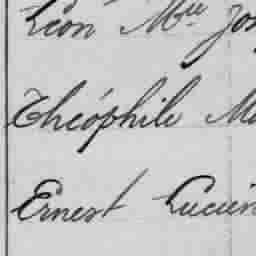 Léon Mie Jos
Théophile Ma
Ernest Lucien